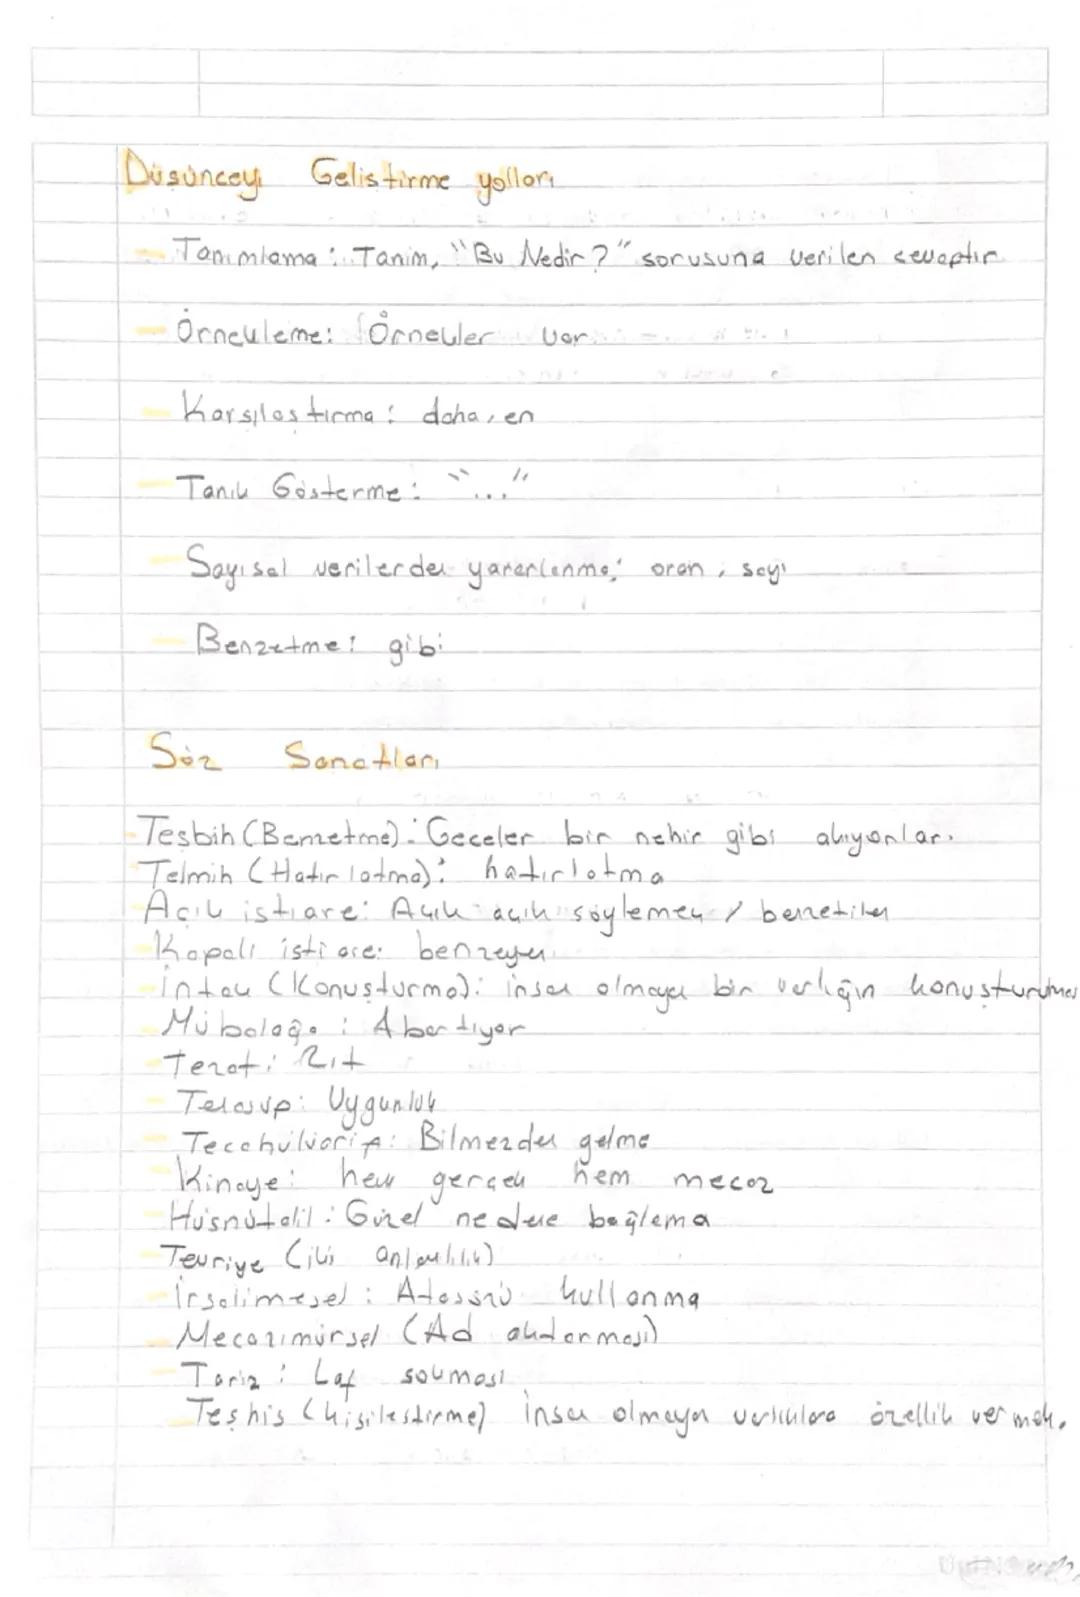 Düşünceyi Geliştirme yolları
- Tanımlama : Tanım, "Bu Nedir?" sorusuna verilen cevaptır
- Örnekleme: Örnekler var
- Karşılaştırma : daha, en
- Tanık Gösterme: "..."
- Sayısal verilerden yararlanma: oran, sayı
- Benzetme: gibi
Söz Sanatları
- Teşbih (Benzetme): Geceler bir nehir gibi akıyorlar.
- Telmih (Hatırlatma): hatırlatma
- Açık istiare: Açık açık söylemek / benzetilen
- Kapalı istiare: benzeyen
- İntak (Konuşturma): insan olmayan bir varlığın konuşturulması
- Mübalağa : Abartıyor
- Tezat: Zıt
- Tenasüp: Uygunluk
- Tecahülüarif: Bilmezden gelme
- Kinaye: hem gerçek hem mecaz
- Hüsnütalil : Güzel nedene bağlama
- Tevriye (iki anlamlılık)
- İrsalimesel : Atasözü kullanma
- Mecazımürsel (Ad aktarması)
- Tariz : Laf sokması
- Teşhis (kişileştirme) İnsan olmayan varlıklara özellik vermek.